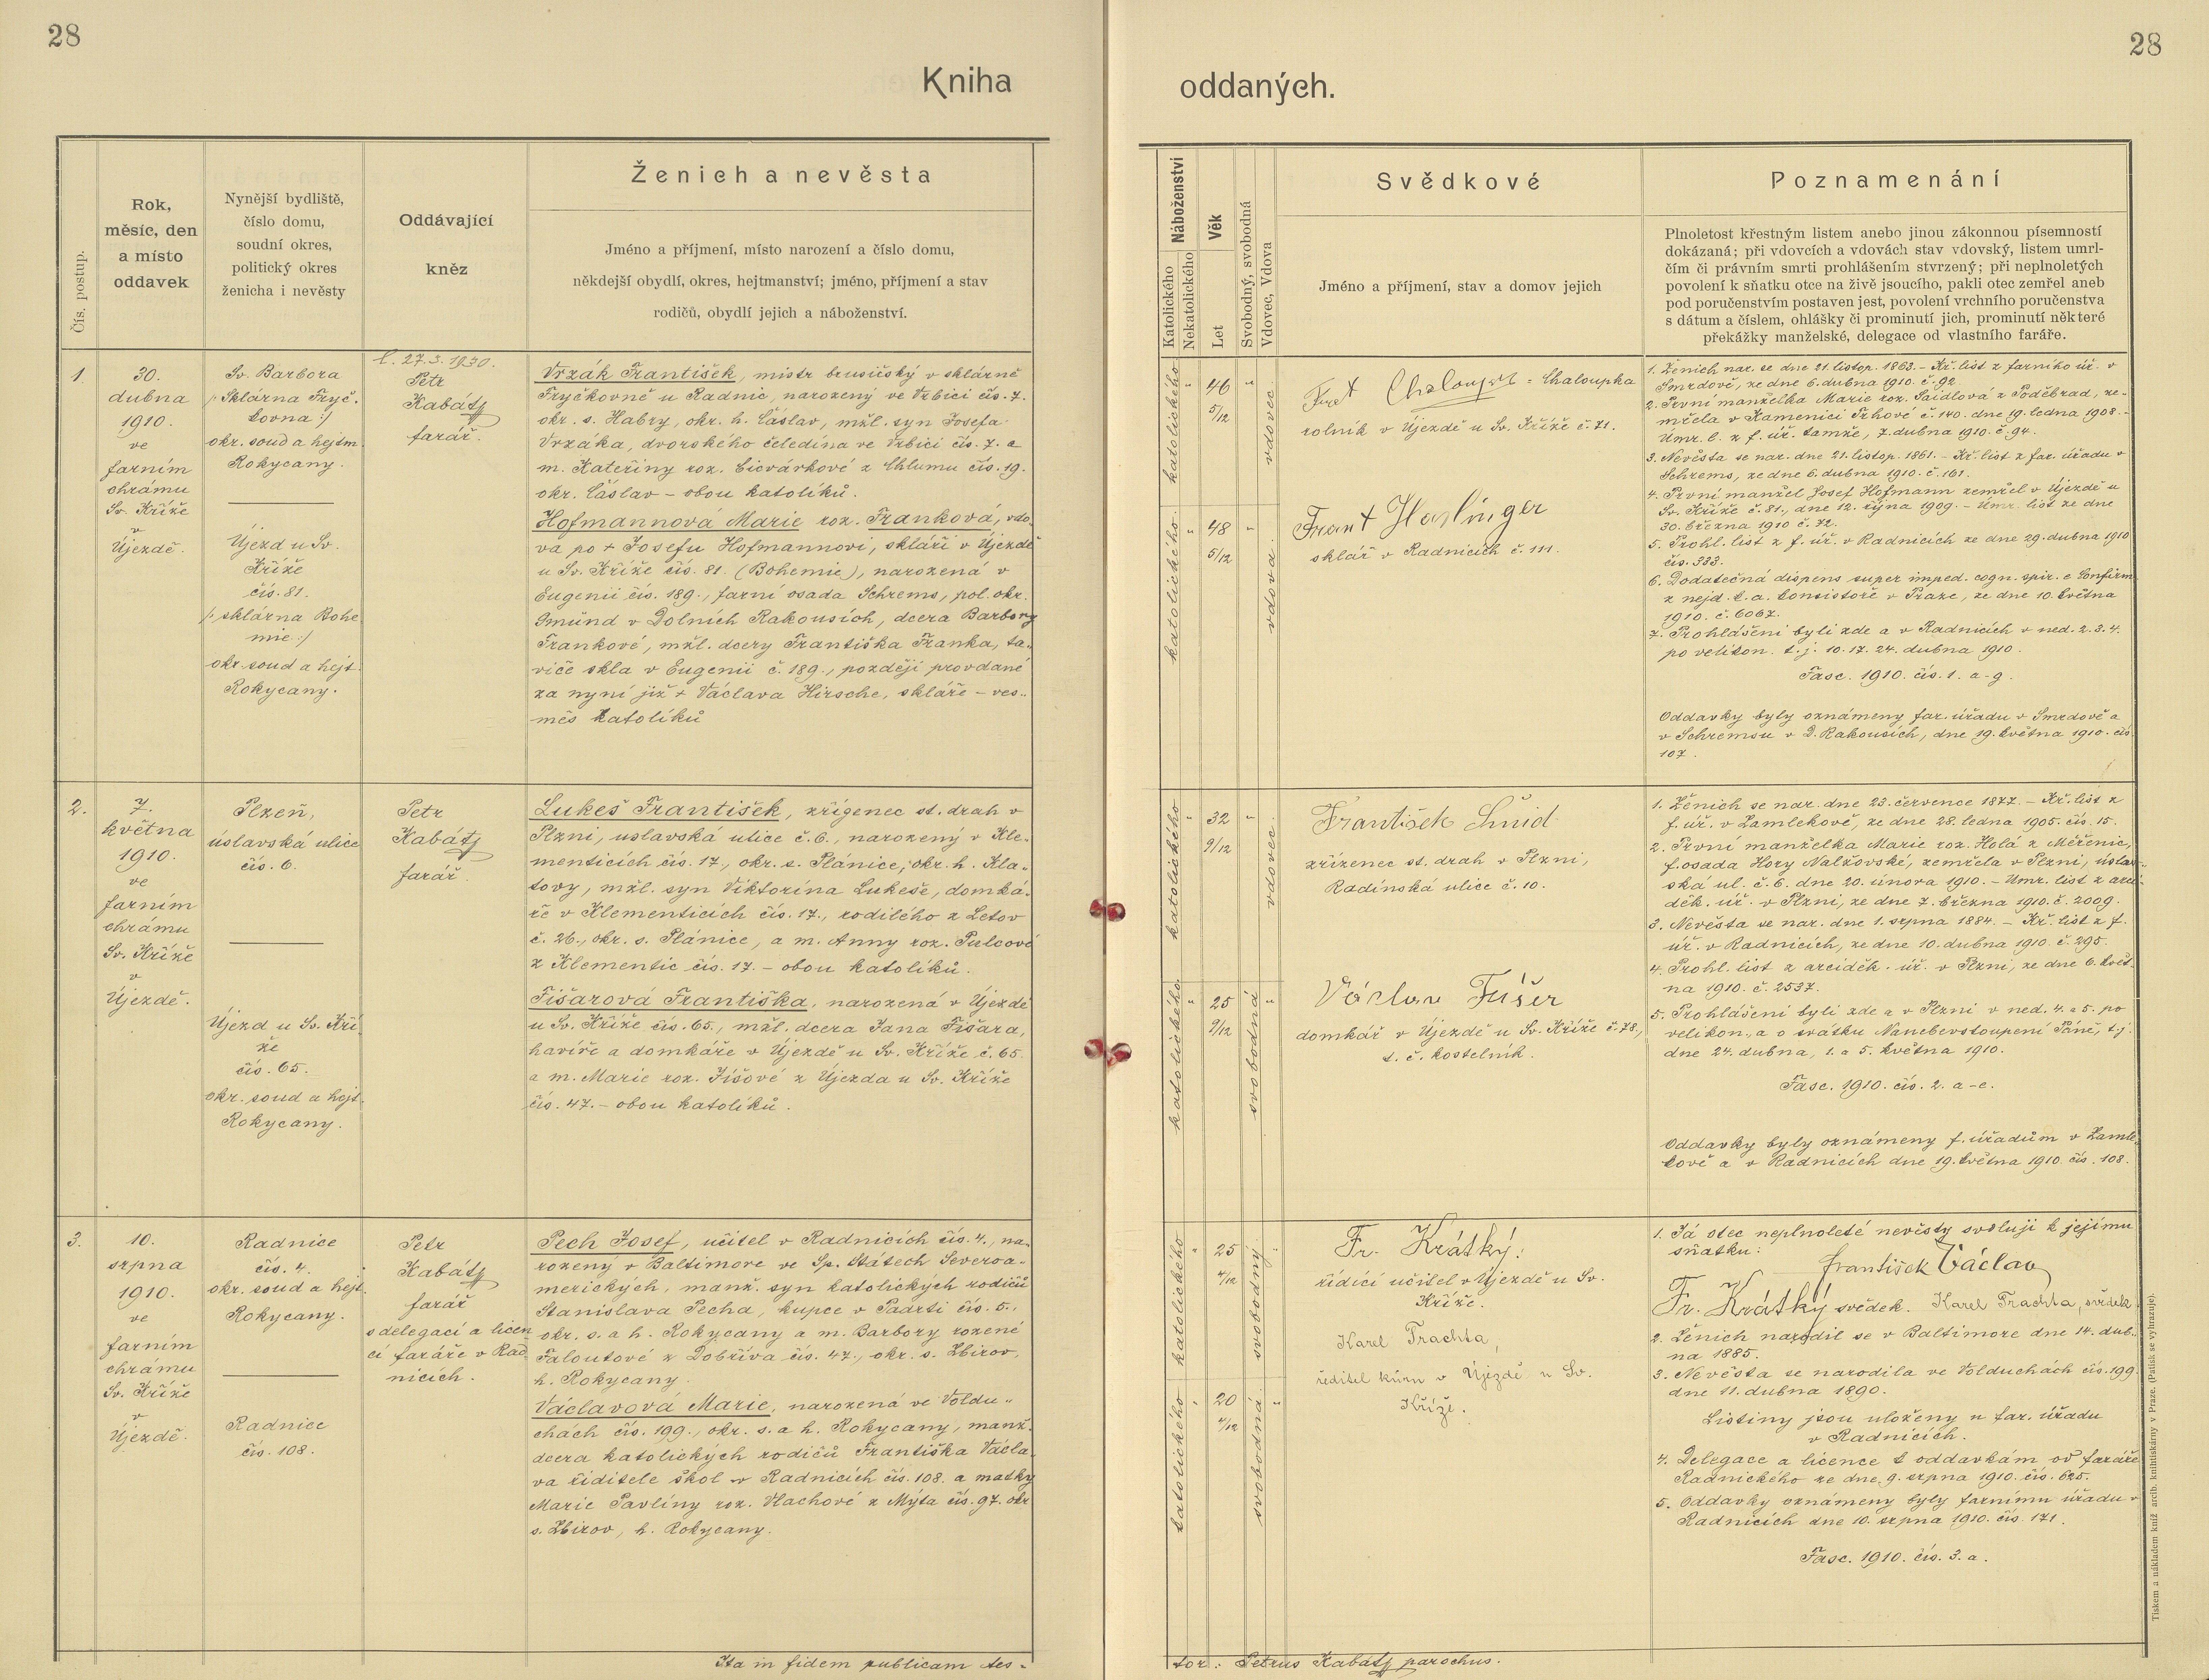 28
28
Kniha
oddaných.
Čís. postup.
Rok,
měsíc, den
a místo
oddavek
Nynější bydliště,
číslo domu,
soudní okres,
politický okres
ženicha i nevěsty
Oddávající
kněz
Ženich a nevěsta
Jméno a příjmení, místo narození a číslo domu,
někdejší obydlí, okres, hejtmanství; jméno, příjmení a stav
rodičů, obydlí jejich a náboženství.
Náboženství
Katolického
Nekatolického
Věk
Let
Svobodný, svobodná
Vdovec, Vdova
Svědkové
Jméno a příjmení, stav a domov jejich
Poznamenání
Plnoletost křestným listem anebo jinou zákonnou písemností
dokázaná; při vdovcích a vdovách stav vdovský, listem umrl-
čím či právním smrti prohlášením stvrzený; při neplnoletých
povolení k sňatku otce na živě jsoucího, pakli otec zemřel aneb
pod poručenstvím postaven jest, povolení vrchního poručenstva
s dátum a číslem, ohlášky či prominutí jich, prominutí některé
překážky manželské, delegace od vlastního faráře.
1.
30.
dubna
1910.
ve
farním
chrámu
Sv. Kříže
v
Újezdě.
Sv. Barbora
/: Sklárna Fryč-
kovna :/
okr. soud a hejtm.
Rokycany.
Újezd u Sv.
Kříže
čís. 81.
/: sklárna Bohe
mie :/
okr. soud a hejt.
Rokycany.
27.3.1930.
Petr
Kabátj
farář.
Vrzák František, mistr brusičský v sklárně
Fryčkovně u Radnic, narozený ve Vrbici čís. 7.
okr. s. Habry, okr. h. Čáslav, mžl. syn Josefa
Vrzáka, dvorského čeledína ve Vrbici čís. 7. a
m. Kateřiny roz. Bicvárkové z Chlumu čís. 19.
okr. Čáslav – obou katolíků.
Hofmannová Marie roz. Franková, vdo-
va po + Josefu Hofmannovi, skláři v Újezdě
u Sv. Kříže čís. 81. (Bohemie), narozená v
Eugenii čís. 189., farní osada Schrems, pol. okr.
Gmünd v Dolních Rakousích, dcera Barbory
Frankové, mžl. dcery Františka Franka, ta-
viče skla v Eugenii č. 189., později provdané
za nyní již + Václava Hirsche, skláře – ves-
měs katolíků
katolického
"
46
5/12
"
vdovec
katolického
"
48
5/12
"
vdova
Frant Chaloupka = Chaloupka
rolník v Újezdě u Sv. Kříže č. 71.
Frant Haslinger
sklář v Radnicích č. 111.
1. Ženich nar. se dne 21. listop. 1863. – Kř. list z farního úř. v
Smrdově, ze dne 6. dubna 1910. č. 92.
2. První manželka Marie roz. Saidlová z Poděbrad, ze-
mřela v Kamenici Trhové č. 140. dne 19. ledna 1908. –
Úmr. l. z f. úř. tamže, 7. dubna 1910. č. 94.
3. Nevěsta se nar. dne 21. listop. 1861. – Kř. list z far. úřadu v
Schrems, ze dne 6. dubna 1910. č. 161.
4. První manžel Josef Hofmann zemřel v Újezdě u
Sv. Kříže č. 81., dne 12. října 1909. – Úmr. list ze dne
30. března 1910 č. 72.
5. Prohl. list z f. úř. v Radnicích ze dne 29. dubna 1910
čís. 333.
6. Dodatečná dispens super imped. cogn. spir. e Confirm.
z nejd. k. a. konsistoře v Praze, ze dne 10. května
1910. č. 6067.
7. Prohlášeni byli zde a v Radnicích v ned. 2. 3. 4.
po velikon. t. j. 10. 17. 24. dubna 1910.
Fasc. 1910. čís. 1. a-g.
Oddavky byly oznámeny far. úřadu v Smrdově a
v Schremsu v D. Rakousích, dne 19. května 1910. čís.
107.
2.
7.
května
1910.
ve
farním
chrámu
Sv. Kříže
v
Újezdě.
Plzeň,
úslavská ulice
čís. 6.
Újezd u Sv. Kří
že
čís. 65.
okr. soud a hejt.
Rokycany.
Petr
Kabátj
farář.
Lukeš František, zřízenec st. drah v
Plzni, uslavská ulice č. 6., narozený v Kle-
menticích čís. 17., okr. s. Plánice, okr. h. Kla-
tovy, mžl. syn Viktorína Lukeše, domká-
ře v Klementicích čís. 17., rodilého z Letov
č. 26., okr. s. Plánice, a m. Anny roz. Pulcové
z Klementic čís. 17. – obou katolíků.
Fišarová Františka, narozená v Újezdě
u Sv. Kříže čís. 65., mžl. dcera Jana Fišara,
havíře a domkáře v Újezdě u Sv. Kříže č. 65.
a m. Marie roz. Jíšové z Újezda u Sv. Kříže
čís. 47. – obou katolíků.
katolického
"
32
9/12
"
vdovec
katolického
"
25
9/12
svobodná
"
František Šnid
zřízenec st. drah v Plzni,
Radinská ulice č. 10.
Václav Fišer
domkář v Újezdě u Sv. Kříže č. 78,
t. č. kostelník.
1. Ženich se nar. dne 23. července 1877. – Kř. list z
f. úř. v Zamlekově, ze dne 28. ledna 1905. čís. 15.
2. První manželka Marie roz. Holá z Měřenic,
f. osada Hory Nalžovské, zemřela v Plzni, úslav-
ská ul. č. 6. dne 20. února 1910. – Úmr. list z arci-
děk. úř. v Plzni, ze dne 7. března 1910. č. 2009.
3. Nevěsta se nar. dne 1. srpna 1884. – Kř. list z f.
úř. v Radnicích, ze dne 10. dubna 1910. č. 295.
4. Prohl. list z arciděk. úř. v Plzni, ze dne 6. květ-
na 1910. č. 2537.
5. Prohlášeni byli zde a v Plzni v ned. 4. a 5. po
velikon., a o svátku Nanebevstoupení Páně, t. j.
dne 24. dubna, 1. a 5. května 1910.
Fasc. 1910. čís. 2. a-e.
Oddavky byly oznámeny f. úřadům v Zamle-
kově a v Radnicích dne 19. května 1910. čís. 108.
3.
10.
srpna
1910.
ve
farním
chrámu
Sv. Kříže
v
Újezdě.
Radnice
čís. 4.
okr. soud a hejt.
Rokycany.
Radnice
čís. 108.
Petr
Kabátj
farář
s delegací a licen
cí faráře v Rad
nicích.
Pech Josef, učitel v Radnicích čís. 4., na-
rozený v Baltimore ve Sp. Státech Severoa-
merických, manž. syn katolických rodičů
Stanislava Pecha, kupce v Padrti čís. 5.,
okr. s. a h. Rokycany a m. Barbory rozené
Faloutové z Dobříva čís. 47., okr. s. Zbirov,
h. Rokycany.
Václavová Marie, narozená ve Voldu-
chách čís. 199., okr. s. a h. Rokycany, manž.
dcera katolických rodičů Františka Václa-
va řiditele škol v Radnicích čís. 108. a matky
Marie Pavlíny roz. Vlachové z Mýta čís. 97. okr.
s. Zbirov, h. Rokycany.
katolického
"
25
4/12
svobodný
"
katolického
"
20
4/12
svobodná
"
Fr. Krátký.
řídící učitel v Újezdě u Sv.
Kříže.
Karel Trachta,
ředitel kůru v Újezdě u Sv.
Kříže.
1. Já otec neplnoleté nevěsty svoluji k jejímu
sňatku:
František Václav
Fr. Krátký svědek. Karel Trachta, svědek
2. Ženich narodil se v Baltimore dne 14. dub-
na 1885.
3. Nevěsta se narodila ve Volduchách čís. 199.
dne 11. dubna 1890.
Listiny jsou uloženy u far. úřadu
v Radnicích.
4. Delegace a licence k oddavkám od faráře
Radnického ze dne 9. srpna 1910. čís. 625.
5. Oddavky oznámeny byly farnímu úřadu v
Radnicích dne 10. srpna 1910. čís. 171.
Fasc. 1910. čís. 3. a.
Ita in fidem publicam tes-
tor: Petrus Kabátj parochus.
Tiskem a nákladem kníž. arcib. knihtiskárny v Praze. (Patisk se vyhrazuje).